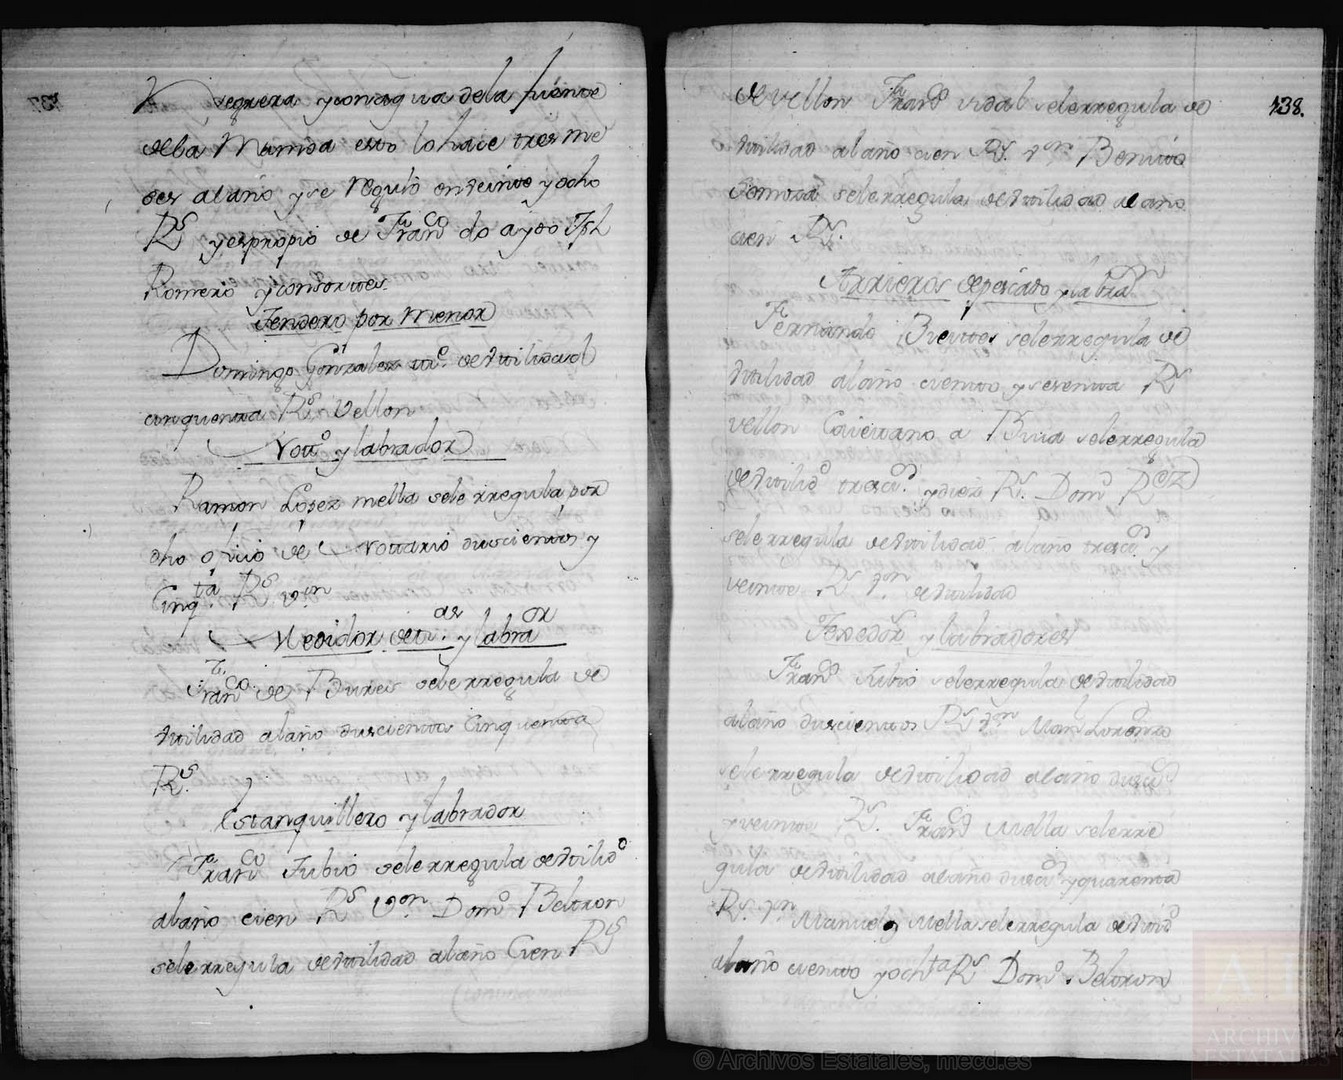 y con agua de la fuente
de la Mamoa esto lo hace tres me
ses al año y se reguló en veinte y ocho
Rs. y es propio de Franco do
Romero y consortes.
Tendero por Menor
Domingo Gonzalez de utilidad
cinquenta Rs. Vellon
Notto. y labrador
Ramon Lopez mella se le rregula por
dho oficio de Notario duscientos y
Cinqta. Rs. von
Medidor de y labraor
Franco. de Bures se le rregula de
utilidad al año duscientos Cinquenta
Rs.
Estanquillero y labrador
Franco Jubio se le rregula de utilido
al año cien Rs von Domo Beltron
se le rregula de utilidad al año Cien Rs
de vellon Franco vidal se le rregula de
utilidad al año cien Rs. von Benito
Somoza se le rregula de utilidad al año
cien Rs.
138.
Arrieros de pescado y labran
Fernando Brentes se le rregula de
utilidad al año ciento y sesenta Rs
vellon Caietano a Bria se le rregula
de utilido trescos. y diez Rs. Domo Rez
se le rregula de utilidad al año trescos y
veinte Rs von. de utilidad
Texedor y labradores
Franco Jubio se le rregula de utilidad
al año duscientos Rs von Man Lorenzo
se le rregula de utilidad al año duscos
y veinte Rs. Franco Mella se le rre
gula de utilidad al año duscos y quarenta
Rs. von Manuel Mella se le rregula de utido
al año ciento y ochta Rs Domo. Beltron
© Archivos Estatales, mecd.es
ARCHIVOS
ESTATALES